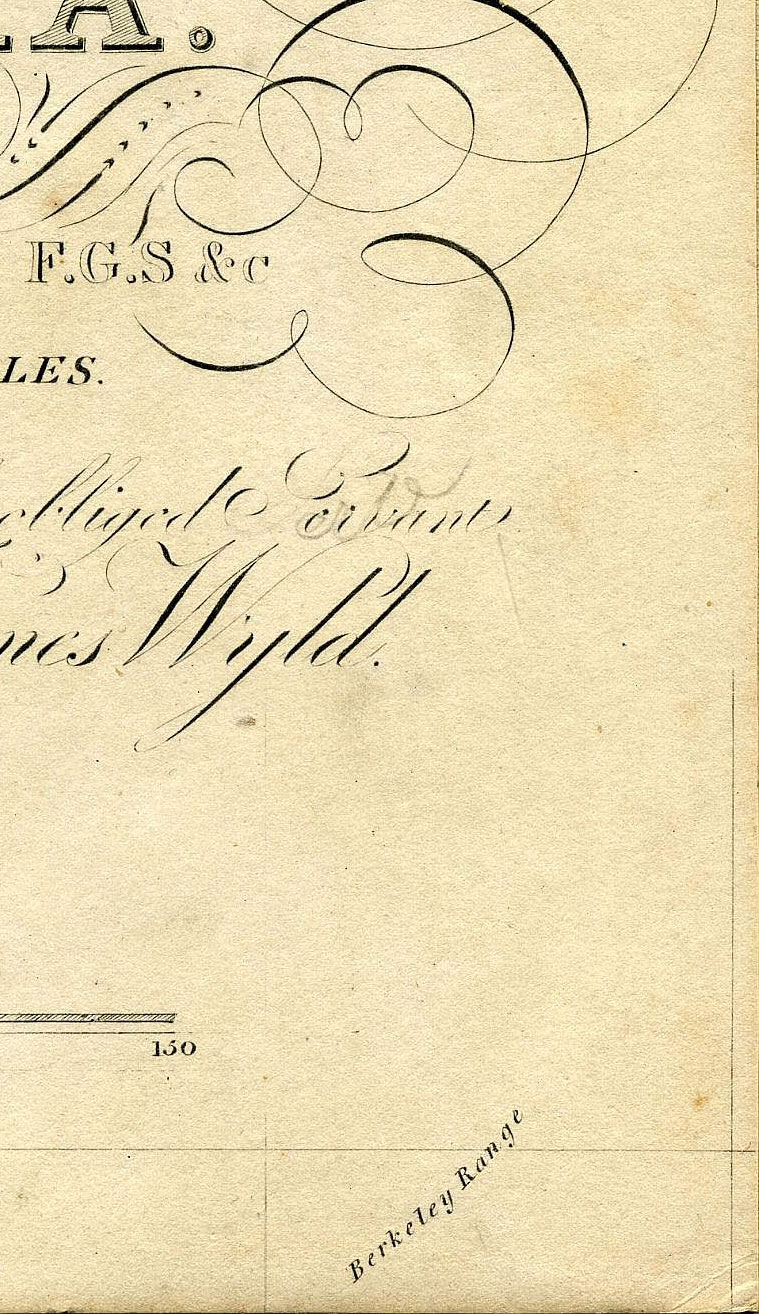 A.
F.G.S &c
LES.
obliged Servant,
mes Wyld.
150
Berkeley Range